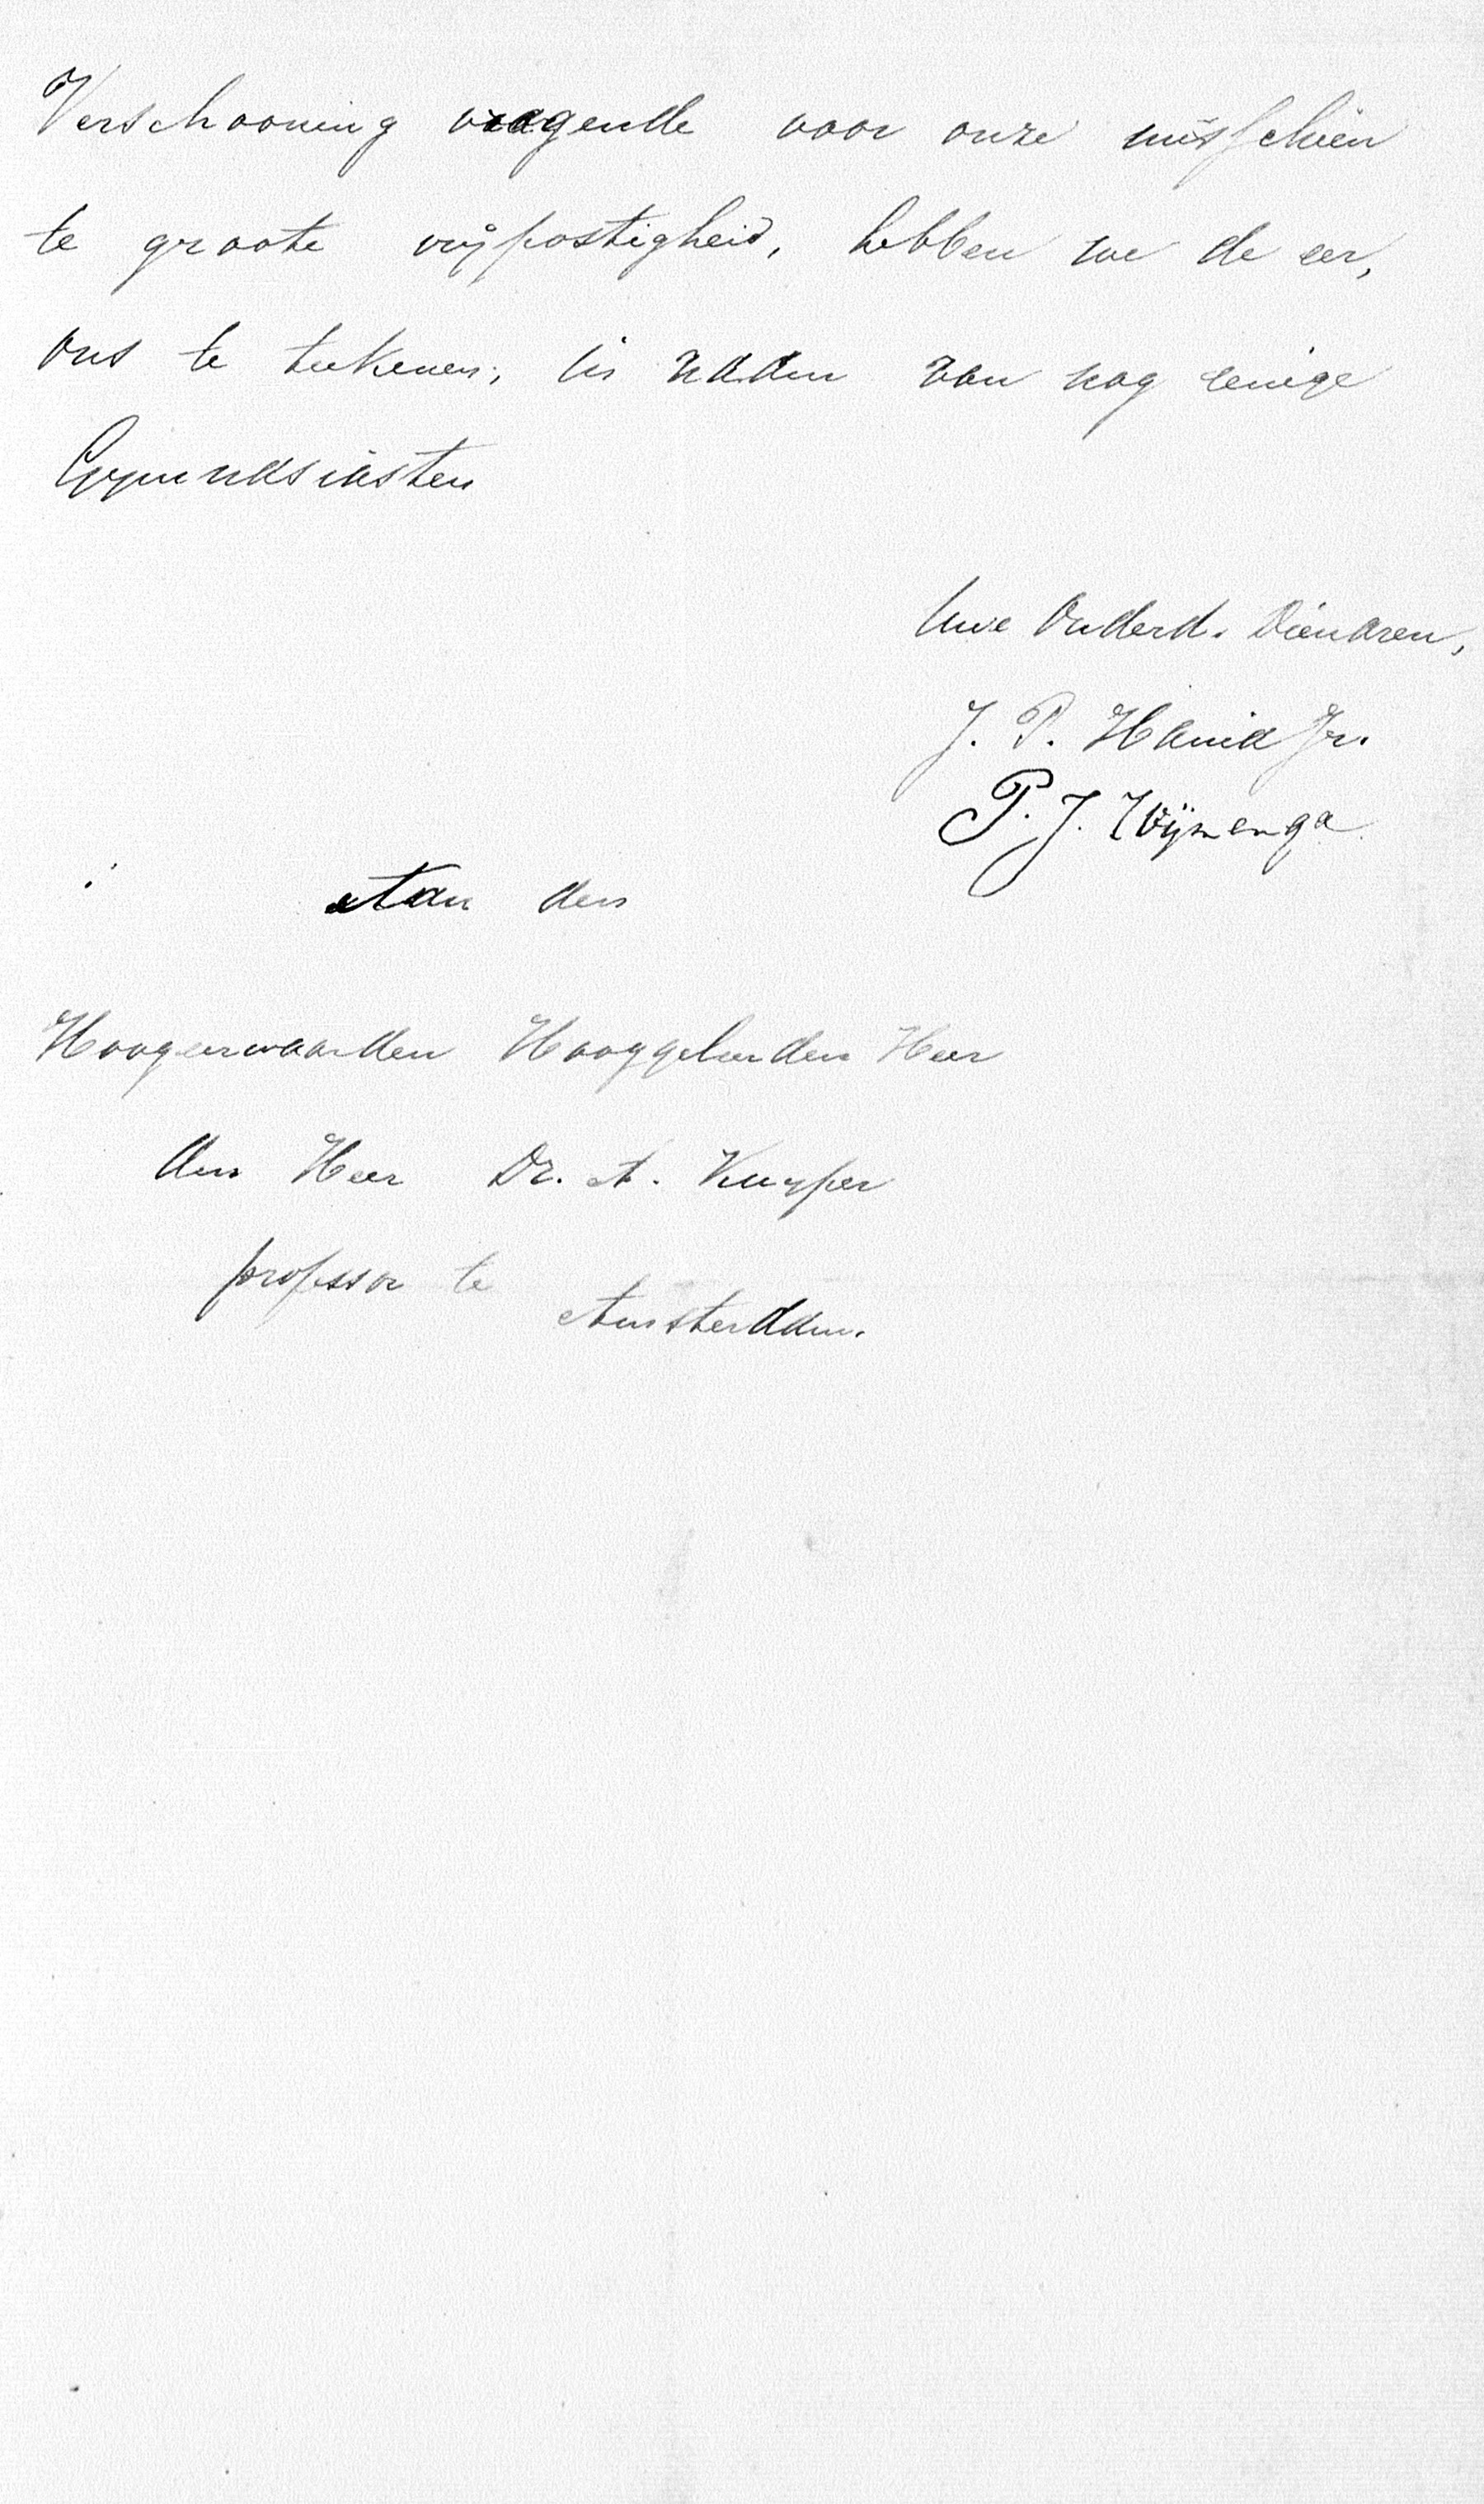 Verschooning vragende voor onze misschien
te groote vrijpostigheid, hebben we de eer,
ons te teekenen, in naam van nog eenige
Gymnasiasten
Uwe Onderd. Dienaren,
J. P. Hania Jr.
P. J. Wijmenga
Aan den
Hoogeerwaarden Hooggeleerden Heer
den Heer Dr. A. Kuyper
professor te
Amsterdam.